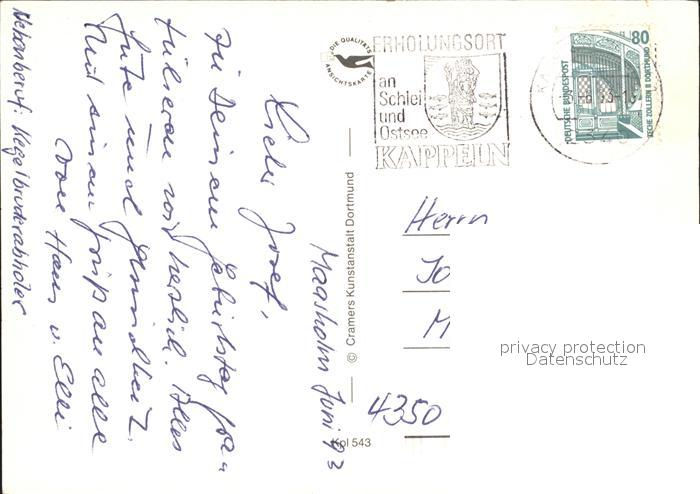 Maasholm Juni 93
Lieber Josef,
zu Deinem Geburtstag gra-
tulieren wir herzlich. Alles
Gute und Gesundheit.
Mit einem Gruß an alle
von Hans u. Elli
Nebenberuf: Kegelbruderabholer
DIE QUALITÄTS
ANSICHTSKARTE
© Cramers Kunstanstalt Dortmund
Kpl 543
ERHOLUNGSORT
an
Schlei
und
Ostsee
KAPPELN
80
DEUTSCHE BUNDESPOST
ZECHE ZOLLERN II DORTMUND
Herrn
Jo
M
4350
privacy protection
Datenschutz